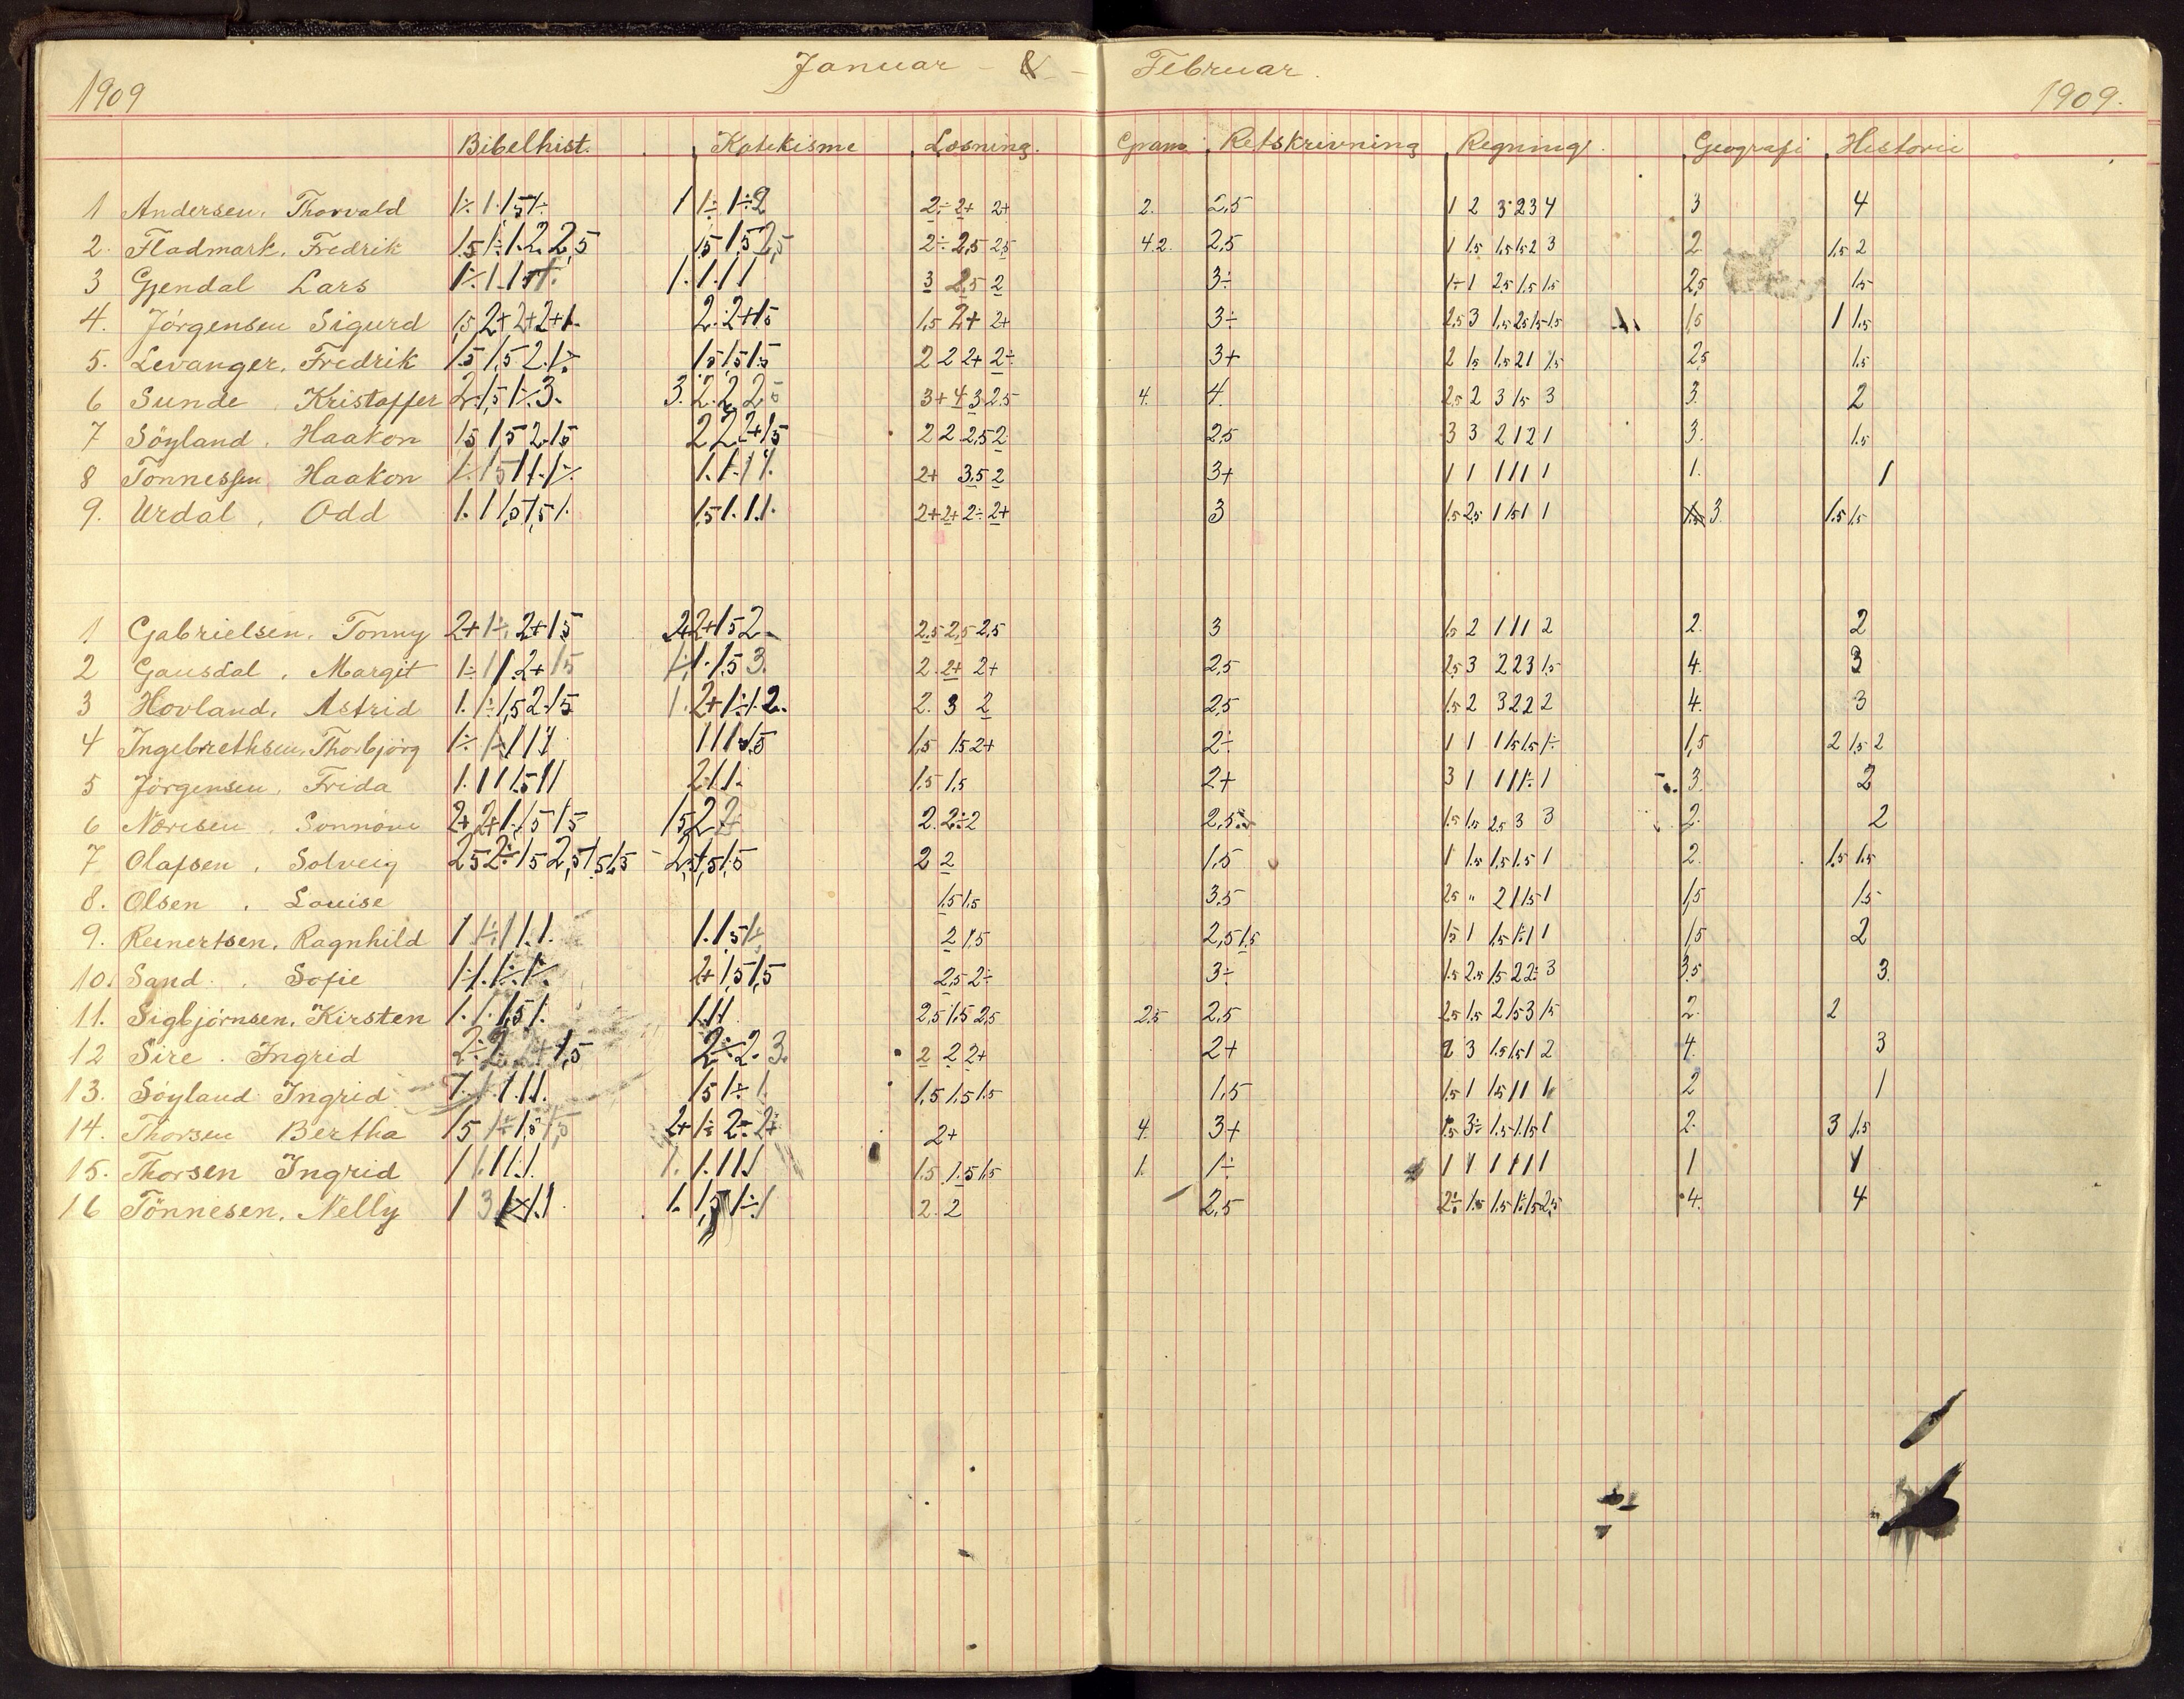 Januar - & - Februar.
1909 1909.
Bibelhist. Katekisme Læsning. Gram. Retskrivning Regning. Geografi Historie
1 Andersen, Thorvald 1÷ 1 1,5 1÷ 1 1÷ 1÷ 2 2÷ 2+ 2+ 2. 2,5 1 2 3 2 3 4 3 4
2. Fladmark, Fredrik 1,5 1÷ 1. 2 2,5 1,5 1,5 2,5 2÷ 2,5 2,5 4. 2. 2,5 1 1,5 1,5 1,5 2 3 2 1,5 2
3 Gjendal Lars 1. 1. 1 1 3 2,5 2 3÷ 1÷ 1 2,5 1,5 1,5 2,5 1,5
4. Jörgensen Sigurd 1,5 2+ 2+ 2+ 1. 2. 2+ 1,5 1,5 2+ 2+ 3÷ 2,5 3 1,5 2,5 1,5 1,5 1,5 1 1,5
5. Levanger, Fredrik 1.5 1,5 2. 1÷ 1,5 1,5 1,5 2 2 2+ 2÷ 3+ 2 1,5 1,5 2 1 1,5 2,5 1.5
6 Sunde, Kristoffer 2. 1,5 1÷ 3. 3. 2. 2 2. 3+ 4 3 2.5 4. 4. 2,5 2 3 1,5 3 3. 2
7 Söyland, Haakon 1,5 1,5 2. 1,5 2 2 2+ 1,5 2 2 2,5 2 2,5 3 3 2 1 2 1 3. 1.5
8 Tönnessen, Haakon 1÷ 1 5 1 1. 1÷ 1. 1. 1 1. 2+ 3,5 2 3+ 1 1 1 1 1 1 1. 1
9. Urdal, Odd 1. 1 1,5 1,5 1. 1,5 1. 1. 1. 2+ 2+ 2÷ 2+ 3 1.5 2,5 1 1,5 1 1 3. 1.5 1.5
1 Gabrielsen, Tonny 2+ 1÷ 2+ 1,5 2 2+ 1,5 2 2,5 2,5 2,5 3 1.5 2 1 1 1 2 2. 2
2 Gausdal, Margit 1÷ 1 1. 2+ 1,5 1. 1. 1.5 3. 2. 2+ 2+ 2,5 2,5 3 2 2 3 1.5 4. 3
3 Hovland, Astrid 1. 1÷ 1,5 2. 1,5 1. 2+ 1÷ 1. 2. 2. 3 2 2,5 1.5 2 3 2 2 2 4. 3
4 Ingebrethsen, Thorbjörg 1÷ 1÷ 1 1 1 1 1 1 1,5 1,5 1,5 2+ 2÷ 1 1 1 1,5 1,5 1÷ 1,5 2 1,5 2
5 Jörgensen, Frida 1. 1 1 1.5 1 1 2. 1 1. 1.5 1,5 2+ 3 1 1 1 1÷ 1 3. 2
6 Næresen, 2+ 2+ 1. 1,5 1,5 1,5 2 2 2. 2÷ 2 2,5 1.5 1.5 2,5 3 3 2. 2
7 Olafsen, Solveig 2,5 2÷ 1,5 2,5 1,5 1,5 2,5 1,5 1,5 2 2 1,5 1 1.5 1.5 1.5 1 2. 1.5 1.5
8. Olsen, Louise 1.5 1.5 3,5 2,5 " 2 1 1,5 1 1,5 1,5
9. Reinertsen, Ragnhild 1 1÷ 1 1. 1. 1. 1,5 1÷ 2 1.5 2,5 1,5 1,5 1 1.5 1÷ 1 1 1,5 2
10. Sand, Sofie 1÷ 1. 1÷ 1÷ 2+ 1,5 1,5 2,5 2÷ 3÷ 1.5 2.5 1.5 2 2÷ 3 3.5 3.
11. Sigbjörnsen, Kirsten 1. 1. 1,5 1. 1. 1 1 2,5 1.5 2,5 2.5 2,5 2,5 1.5 2 1.5 3 1.5 2. 2
12 Sire. Ingrid 2÷ 2. 2+ 1,5 2÷ 2. 3. 2 2 2+ 2+ 2 3 1.5 1.5 1 2 4. 3
13. Söyland Ingrid 1. 1 1 1 1. 1,5 1÷ 1. 1,5 1,5 1.5 1,5 1.5 1 1,5 1 1 1 2 1
14. Thorsen Bertha 1,5 1÷ 1,5 1,5 2+ 1÷ 2÷ 2÷ 2+ 4. 3+ 1.5 3÷ 1.5 1.5 1 2. 3 1.5
15. Thorsen Ingrid 1 1. 1 1. 1. 1. 1. 1 1 1 1.5 1.5 1.5 1. 1÷ 1 1 1 1 1 1 1 1
16 Tönnesen, Nelly 1 3 1 1 1. 1. 1,5 1÷ 1 2. 2 2,5 2÷ 1.5 1.5 1÷ 1.5 2,5 4. 4